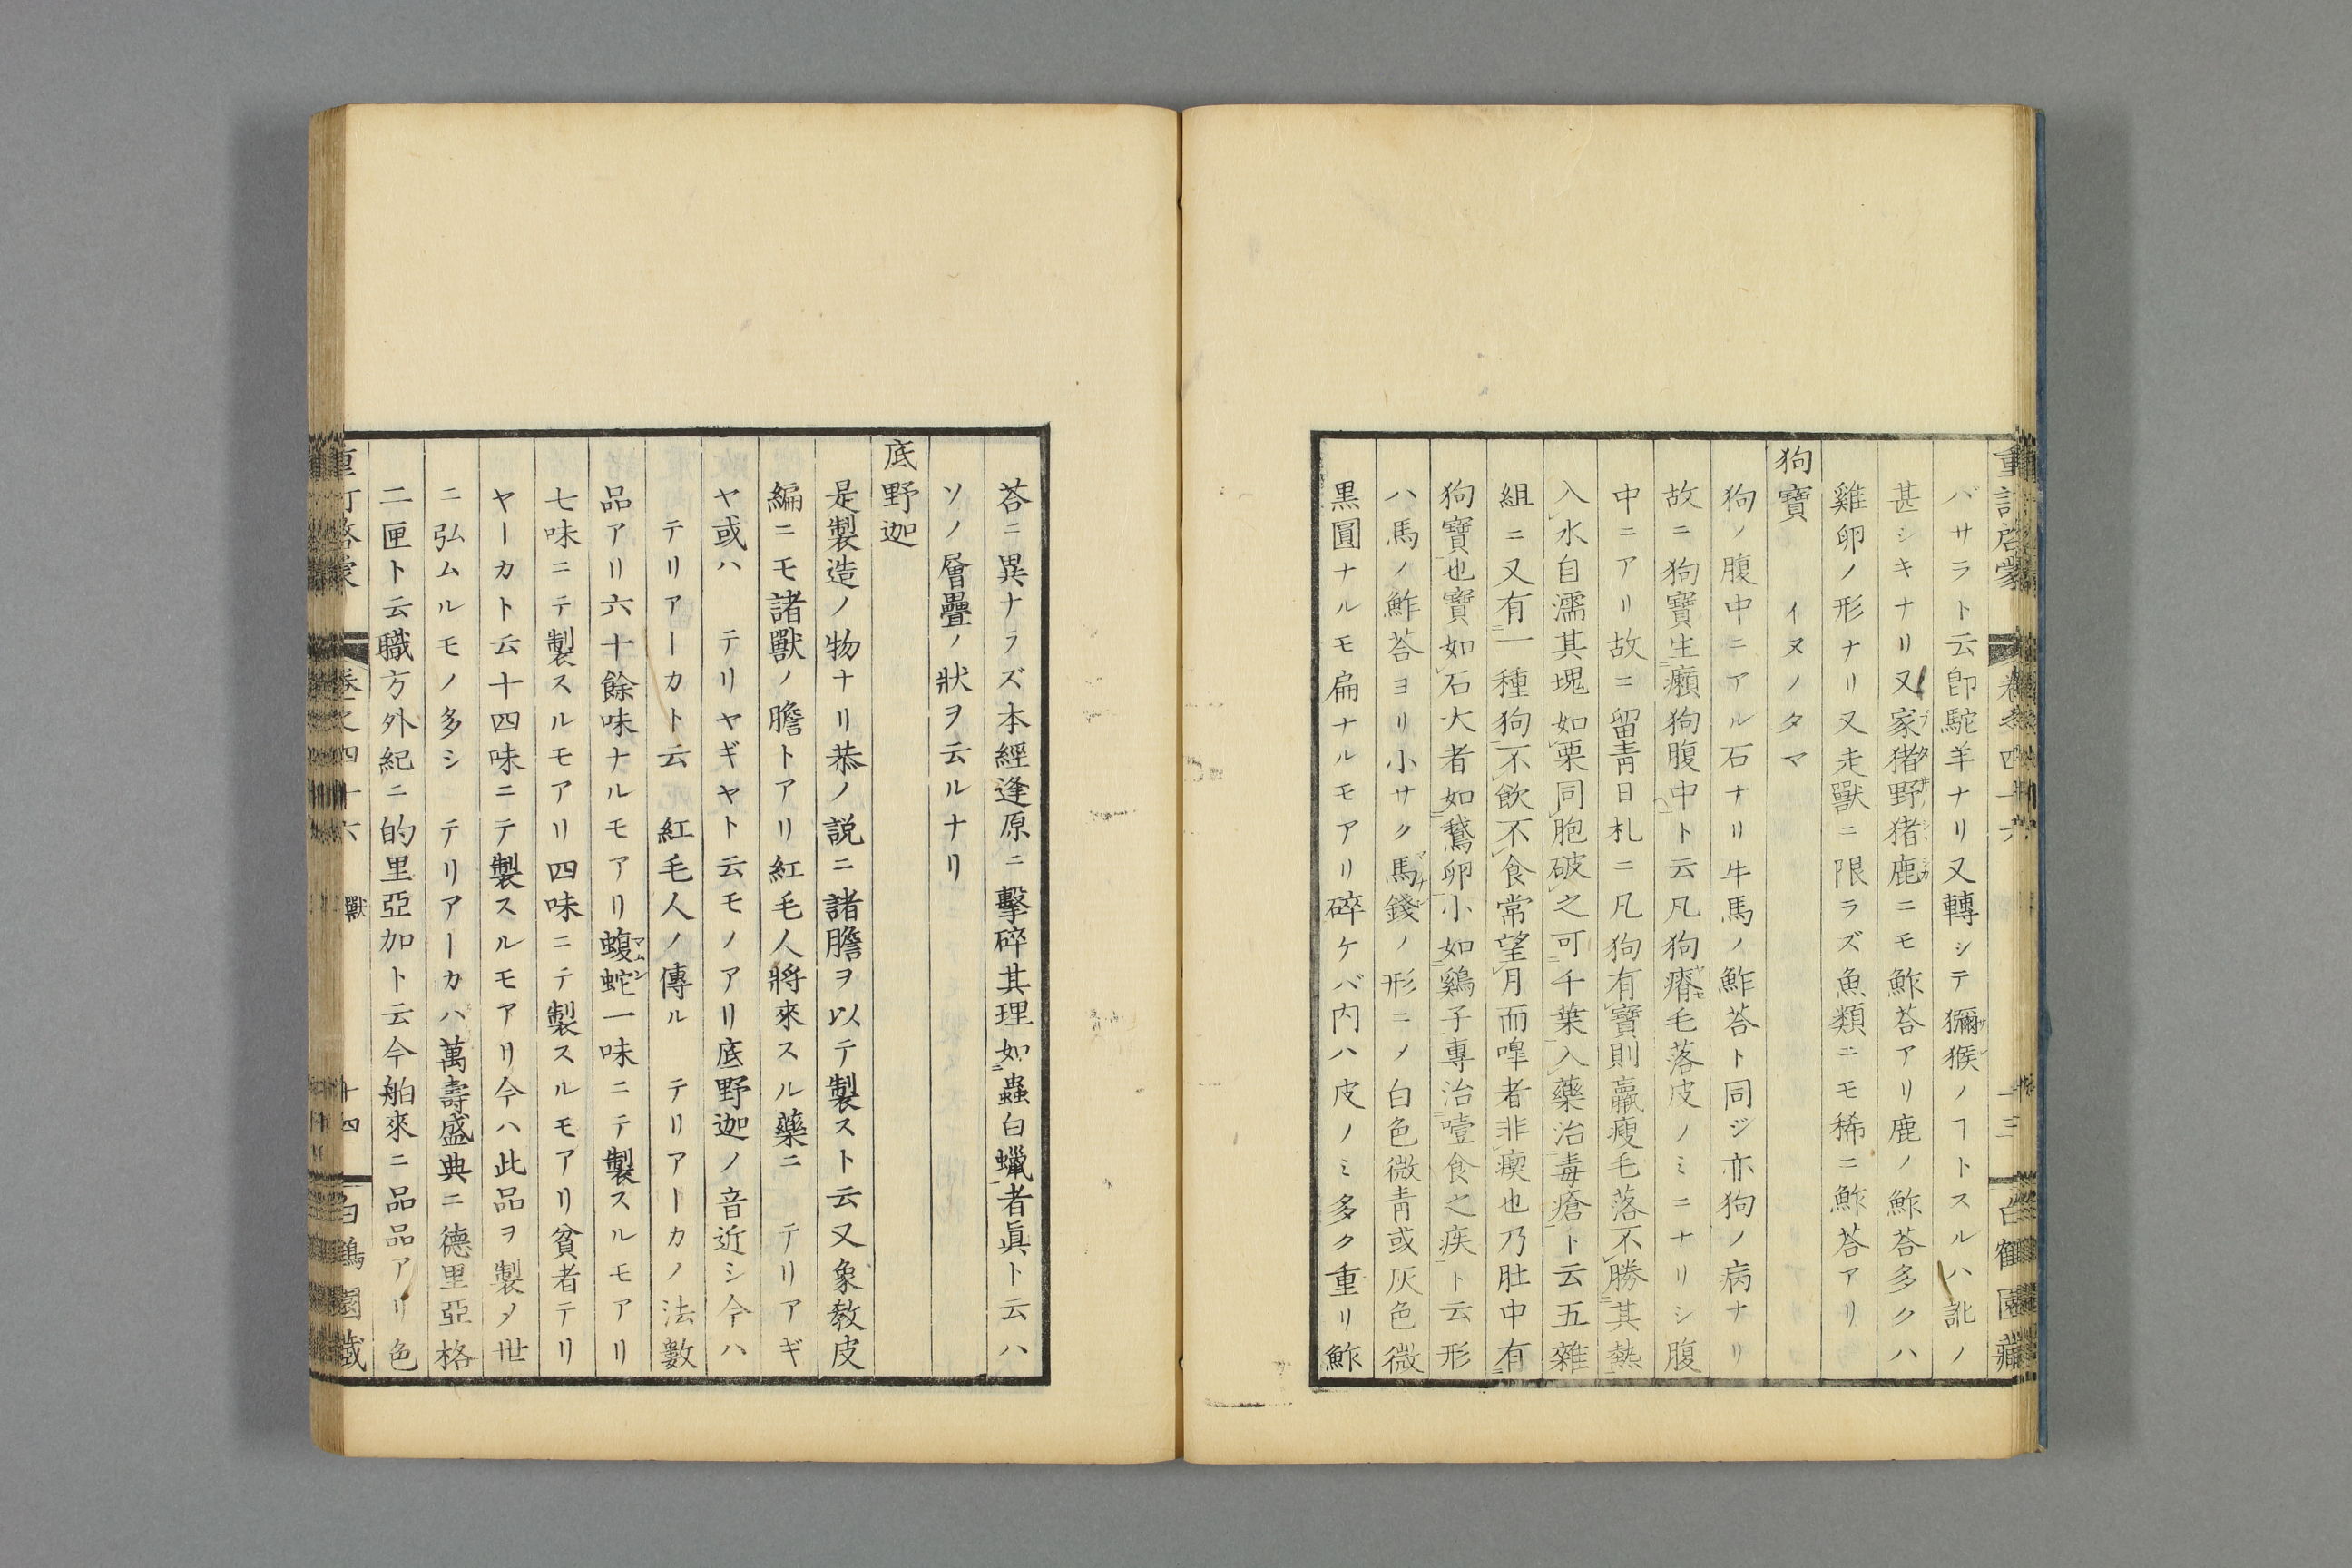 重訂啓蒙 卷之四十六 十三 白鶴園藏
バサラト云卽駝羊ナリ又轉シテ獼猴ノヿトスルハ訛ノ
甚シキナリ又家猪野猪鹿ニモ鮓荅アリ鹿ノ鮓荅多クハ
雞卵ノ形ナリ又走獸ニ限ラズ魚類ニモ稀ニ鮓荅アリ
狗寶 イヌノタマ
狗ノ腹中ニアル石ナリ牛馬ノ鮓荅ト同ジ亦狗ノ病ナリ
故ニ狗寶生癩狗腹中ト云凡狗瘠毛落皮ノミニナリシ腹
中ニアリ故ニ留靑日札ニ凡狗有寶則羸瘦毛落不勝其熱
入水自濡其塊如栗同胞破之可千葉入藥治毒瘡ト云五雜
組ニ又有一種狗不飮不食常望月而嘷者非瘈也乃肚中有
狗寶也寶如石大者如鵞卵小如鷄子專治噎食之疾ト云形
ハ馬ノ鮓荅ヨリ小サク馬錢ノ形ニノ白色微靑或灰色微
黑圓ナルモ扁ナルモアリ碎ケバ內ハ皮ノミ多ク重リ鮓
荅ニ異ナラズ本經逢原ニ擊碎其理如蟲白蠟者眞ト云ハ
ソノ層疊ノ狀ヲ云ルナリ
底野迦
是製造ノ物ナリ恭ノ說ニ諸膽ヲ以テ製スト云又象敎皮
編ニモ諸獸ノ膽トアリ紅毛人將來スル藥ニ テリアギ
ヤ或ハ テリヤギヤト云モノアリ底野迦ノ音近シ今ハ
テリアーカト云 紅毛人ノ傳ル テリアーカノ法數
品アリ六十餘味ナルモアリ蝮蛇一味ニテ製スルモアリ
七味ニテ製スルモアリ四味ニテ製スルモアリ貧者テリ
ヤーカト云十四味ニテ製スルモアリ今ハ此品ヲ製メ世
ニ弘ムルモノ多シ テリアーカハ萬壽盛典ニ德里亞格
二匣ト云職方外紀ニ的里亞加ト云今舶來ニ品品アリ色
重訂啓蒙 卷之四十六 獸 十四 白鶴園藏